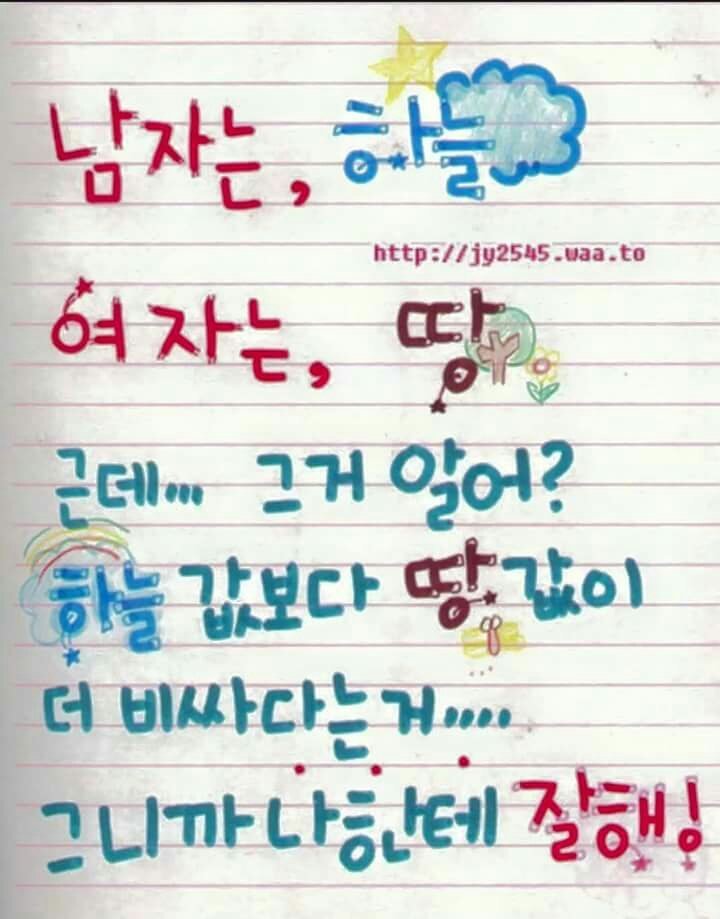 남자는, 하늘
http://jy2545.waa.to
여자는, 땅
근데... 그거 알어?
하늘 값보다 땅 값이
더 비싸다는거.....
그니까 나한테 잘해!